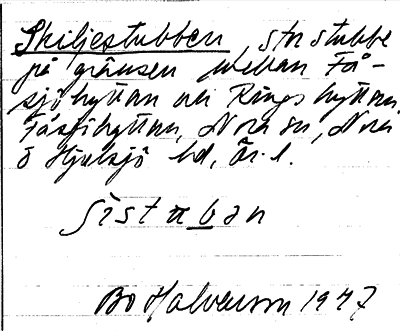 Skiljestubben, stor stubbe
på gränsen mellan Få-
sjöhyttan och Ringshyttan.
Fåsjöhyttan, Nora sn, Nora
o Hjulsjö bd, Ör. l.
Bo Halvarson 1947